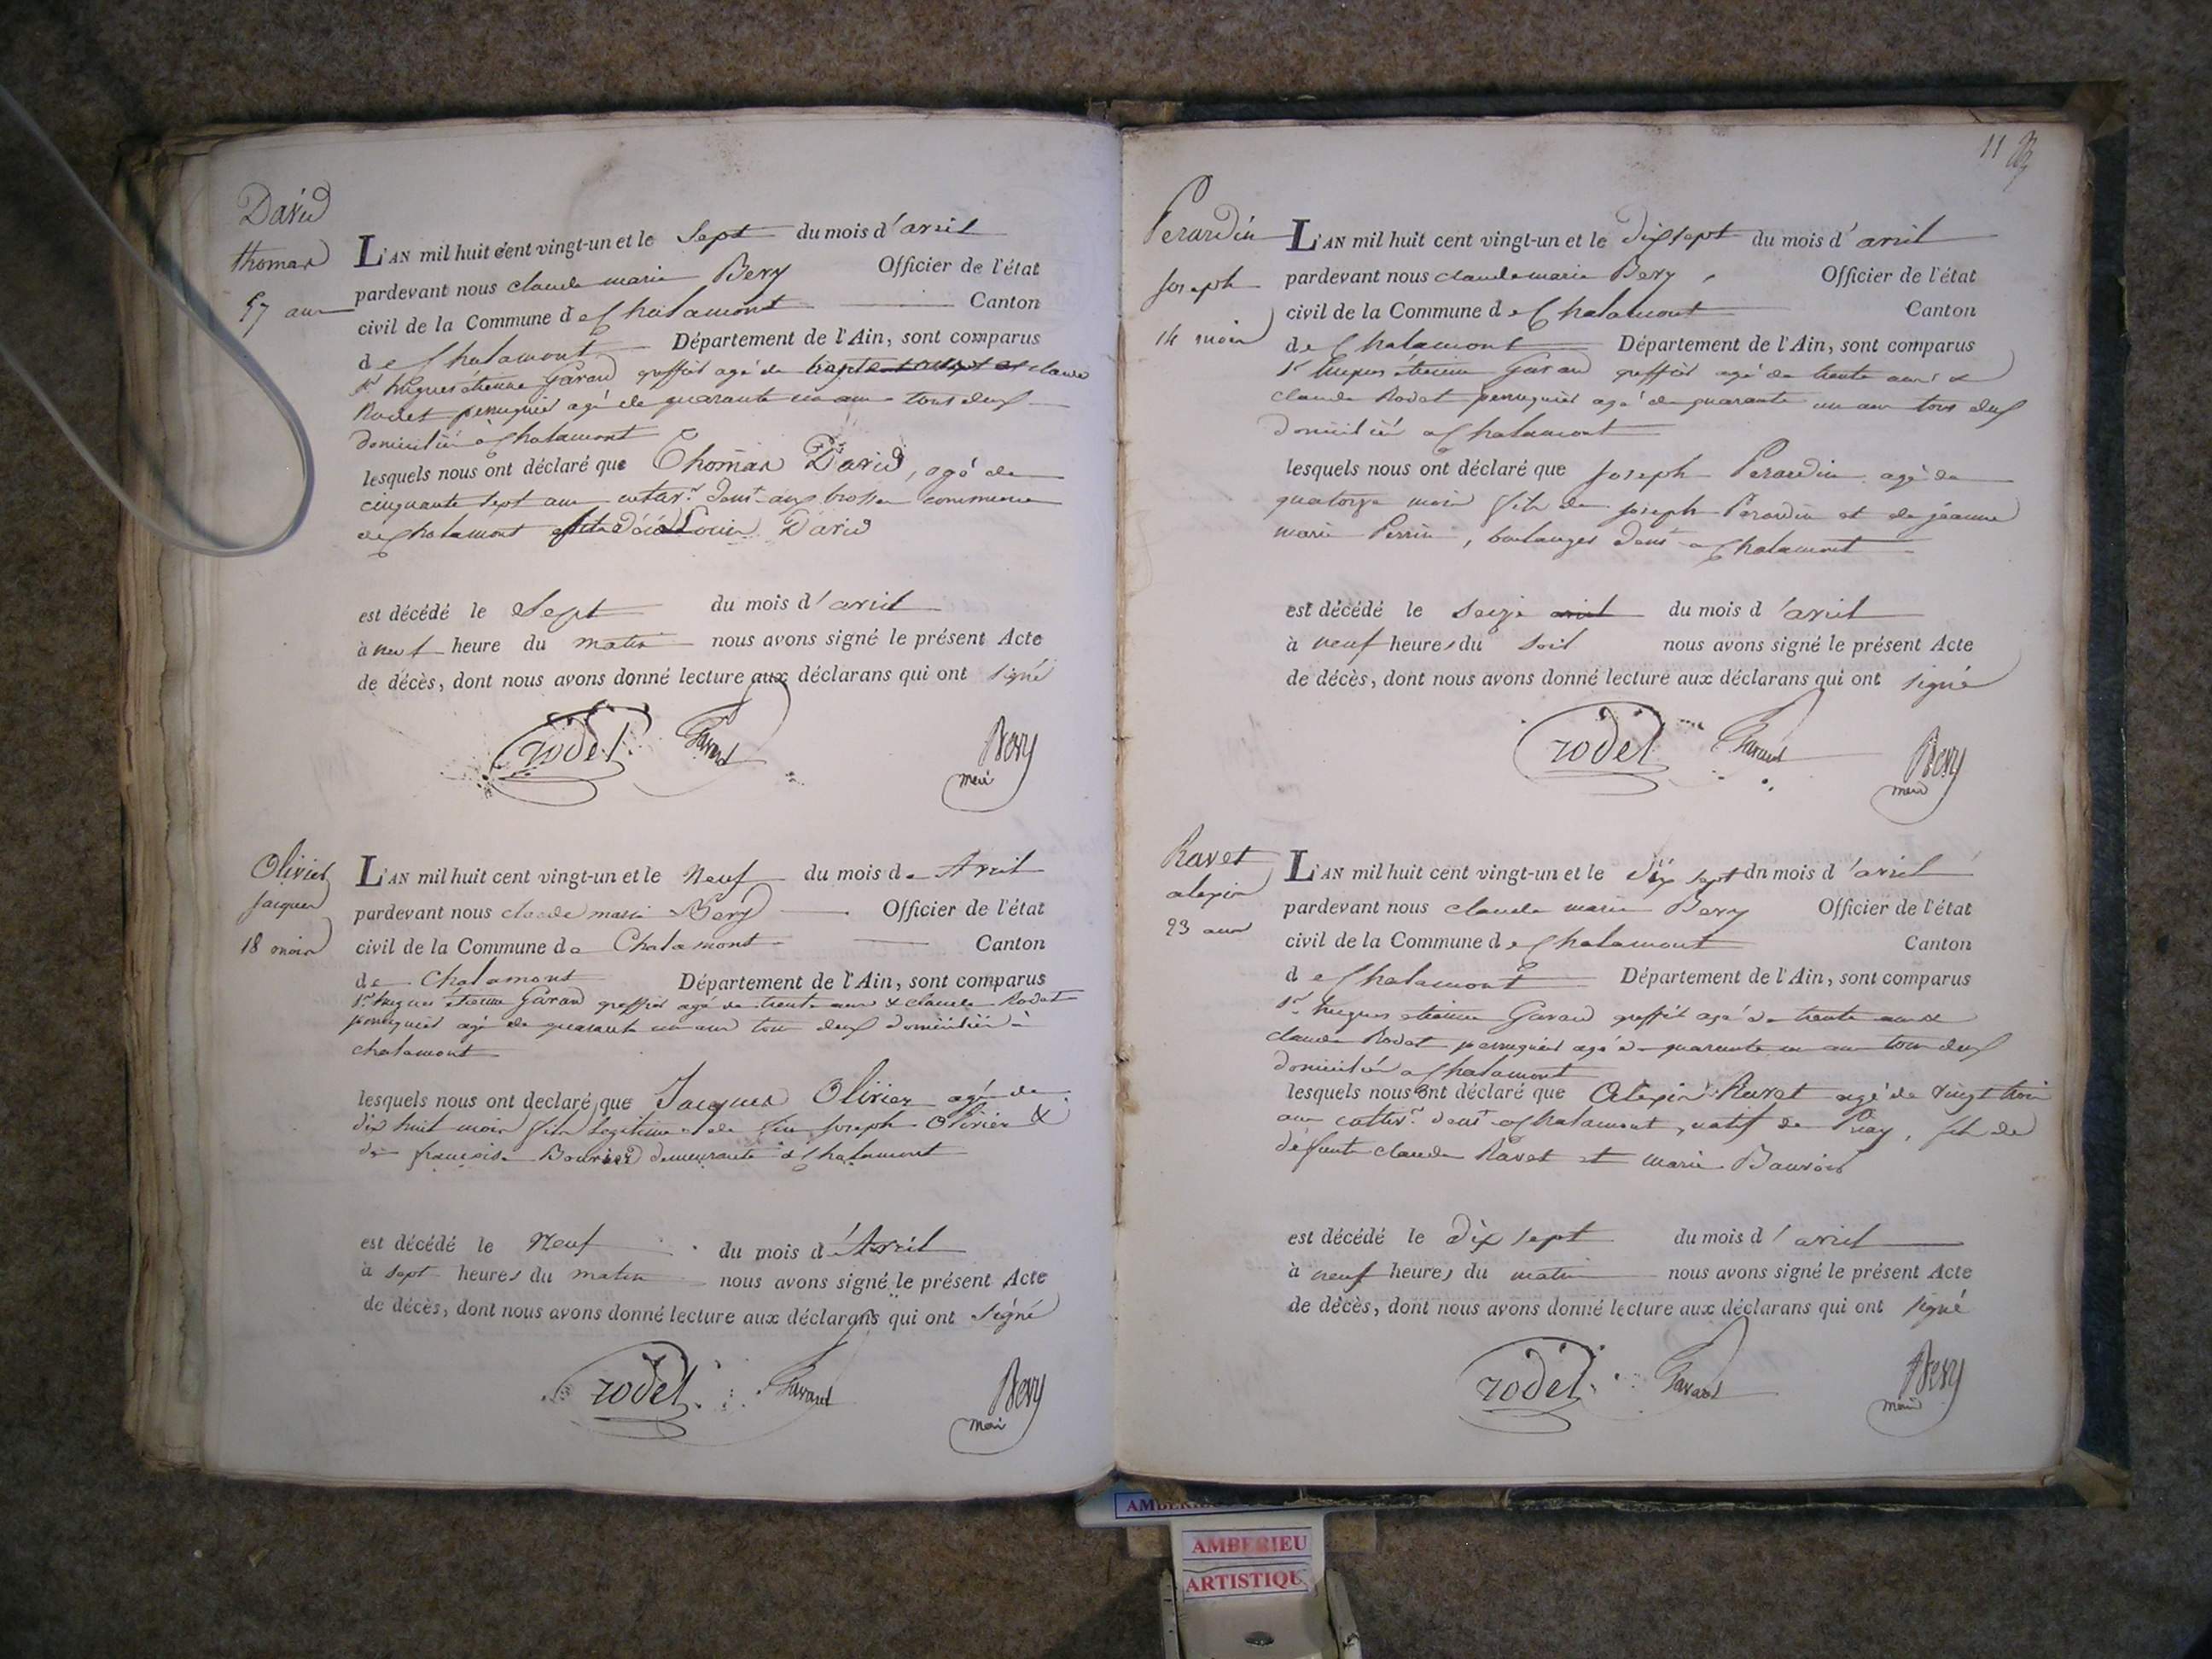 David
thomas
57 ans
L'AN mil huit cent vingt-un et le Sept du mois d'avril
pardevant nous claude marie Bevy Officier de l'état
civil de la Commune de Chalamont Canton
de Chalamont Département de l'Ain, sont comparus
Sr hugues étienne Gavand greffier agé de trente et claude
Rodet perruquier agé de quarante un ans tous deux
domiciliés a Chalamont
lesquels nous ont déclaré que Thomas David, agé de
cinquante sept ans cultivr demt aux brosses commune
de Chalamont Louis David
est décédé le Sept du mois d'avril
à neuf heure du matin nous avons signé le présent Acte
de décès, dont nous avons donné lecture aux déclarans qui ont signé
rodet Gavand Bevy
maire
Olivier
Jacques
18 mois
L'AN mil huit cent vingt-un et le Neuf du mois de Avril
pardevant nous claude marie Bevy Officier de l'état
civil de la Commune de Chalamont Canton
de Chalamont Département de l'Ain, sont comparus
Sr hugues étienne Gavand greffier agé de trente ans & claude Rodet
perruquier agé de quarante un ans tous deux domiciliés à
chalamont
lesquels nous ont declaré que Jacques Olivier agé de
dix huit mois fils legitime de feu Joseph Olivier &
de francoise demeurante à Chalamont
est décédé le Neuf du mois d'Avril
à sept heures du matin nous avons signé le présent Acte
de décès, dont nous avons donné lecture aux déclarans qui ont signé
rodet Gavand Bevy
maire
11
Perardin
Joseph
14 mois
L'AN mil huit cent vingt-un et le dix sept du mois d'avril
pardevant nous claude marie Bevy, Officier de l'état
civil de la Commune de Chalamont Canton
de Chalamont Département de l'Ain, sont comparus
Sr hugues étienne Gavand greffier agé de trente ans &
claude Rodet perruquier agé de quarante un ans tous deux
domiciliés a Chalamont
lesquels nous ont déclaré que Joseph Perardin agé de
quatorze mois fils de Joseph Perardin et de jeanne
marie Perrin, boulanger demt a Chalamont
est décédé le seize avril du mois d'avril
à neuf heures du soir nous avons signé le présent Acte
de décès, dont nous avons donné lecture aux déclarans qui ont signé
rodet Gavand Bevy
maire
Ravet
alexis
23 ans
L'AN mil huit cent vingt-un et le dix sept dn mois d'avril
pardevant nous claude marie Bevy Officier de l'état
civil de la Commune de Chalamont Canton
de Chalamont Département de l'Ain, sont comparus
Sr hugues étienne Gavand greffier agé de trente ans &
claude Rodet perruquier agé de quarante un ans tous deux
domiciliés a Chalamont
lesquels nous ont déclaré que Alexis Ravet agé de vingt trois
ans cultivr demt a Chalamont, natif de fils de
defunts claude Ravet et marie
est décédé le dix sept du mois d'avril
à neuf heures du matin nous avons signé le présent Acte
de décès, dont nous avons donné lecture aux déclarans qui ont signé
rodet Gavand Bevy
maire
AMBERIEU
ARTISTIQU